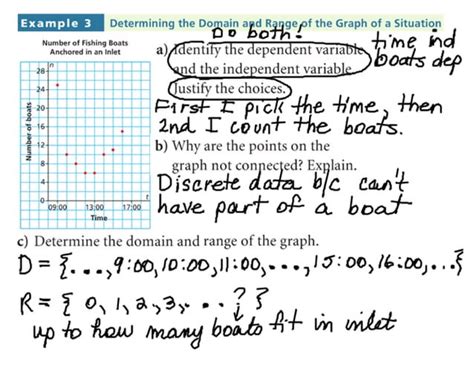 Example 3 Determining the Domain and Range of the Graph of a Situation
Do both!
Number of Fishing Boats
Anchored in an Inlet
n
28
24
20
16
12
8
4
0
09:00 13:00 17:00
t
Number of boats
Time
a) Identify the dependent variable
and the independent variable.
Justify the choices.
time ind
boats dep
First I pick the time, then
2nd I count the boats.
b) Why are the points on the
graph not connected? Explain.
Discrete data b/c can't
have part of a boat
c) Determine the domain and range of the graph.
D = {..., 9:00, 10:00, 11:00, ..., 15:00, 16:00, ...}
R = { 0, 1, 2, 3, . . . ? }
up to how many boats fit in inlet